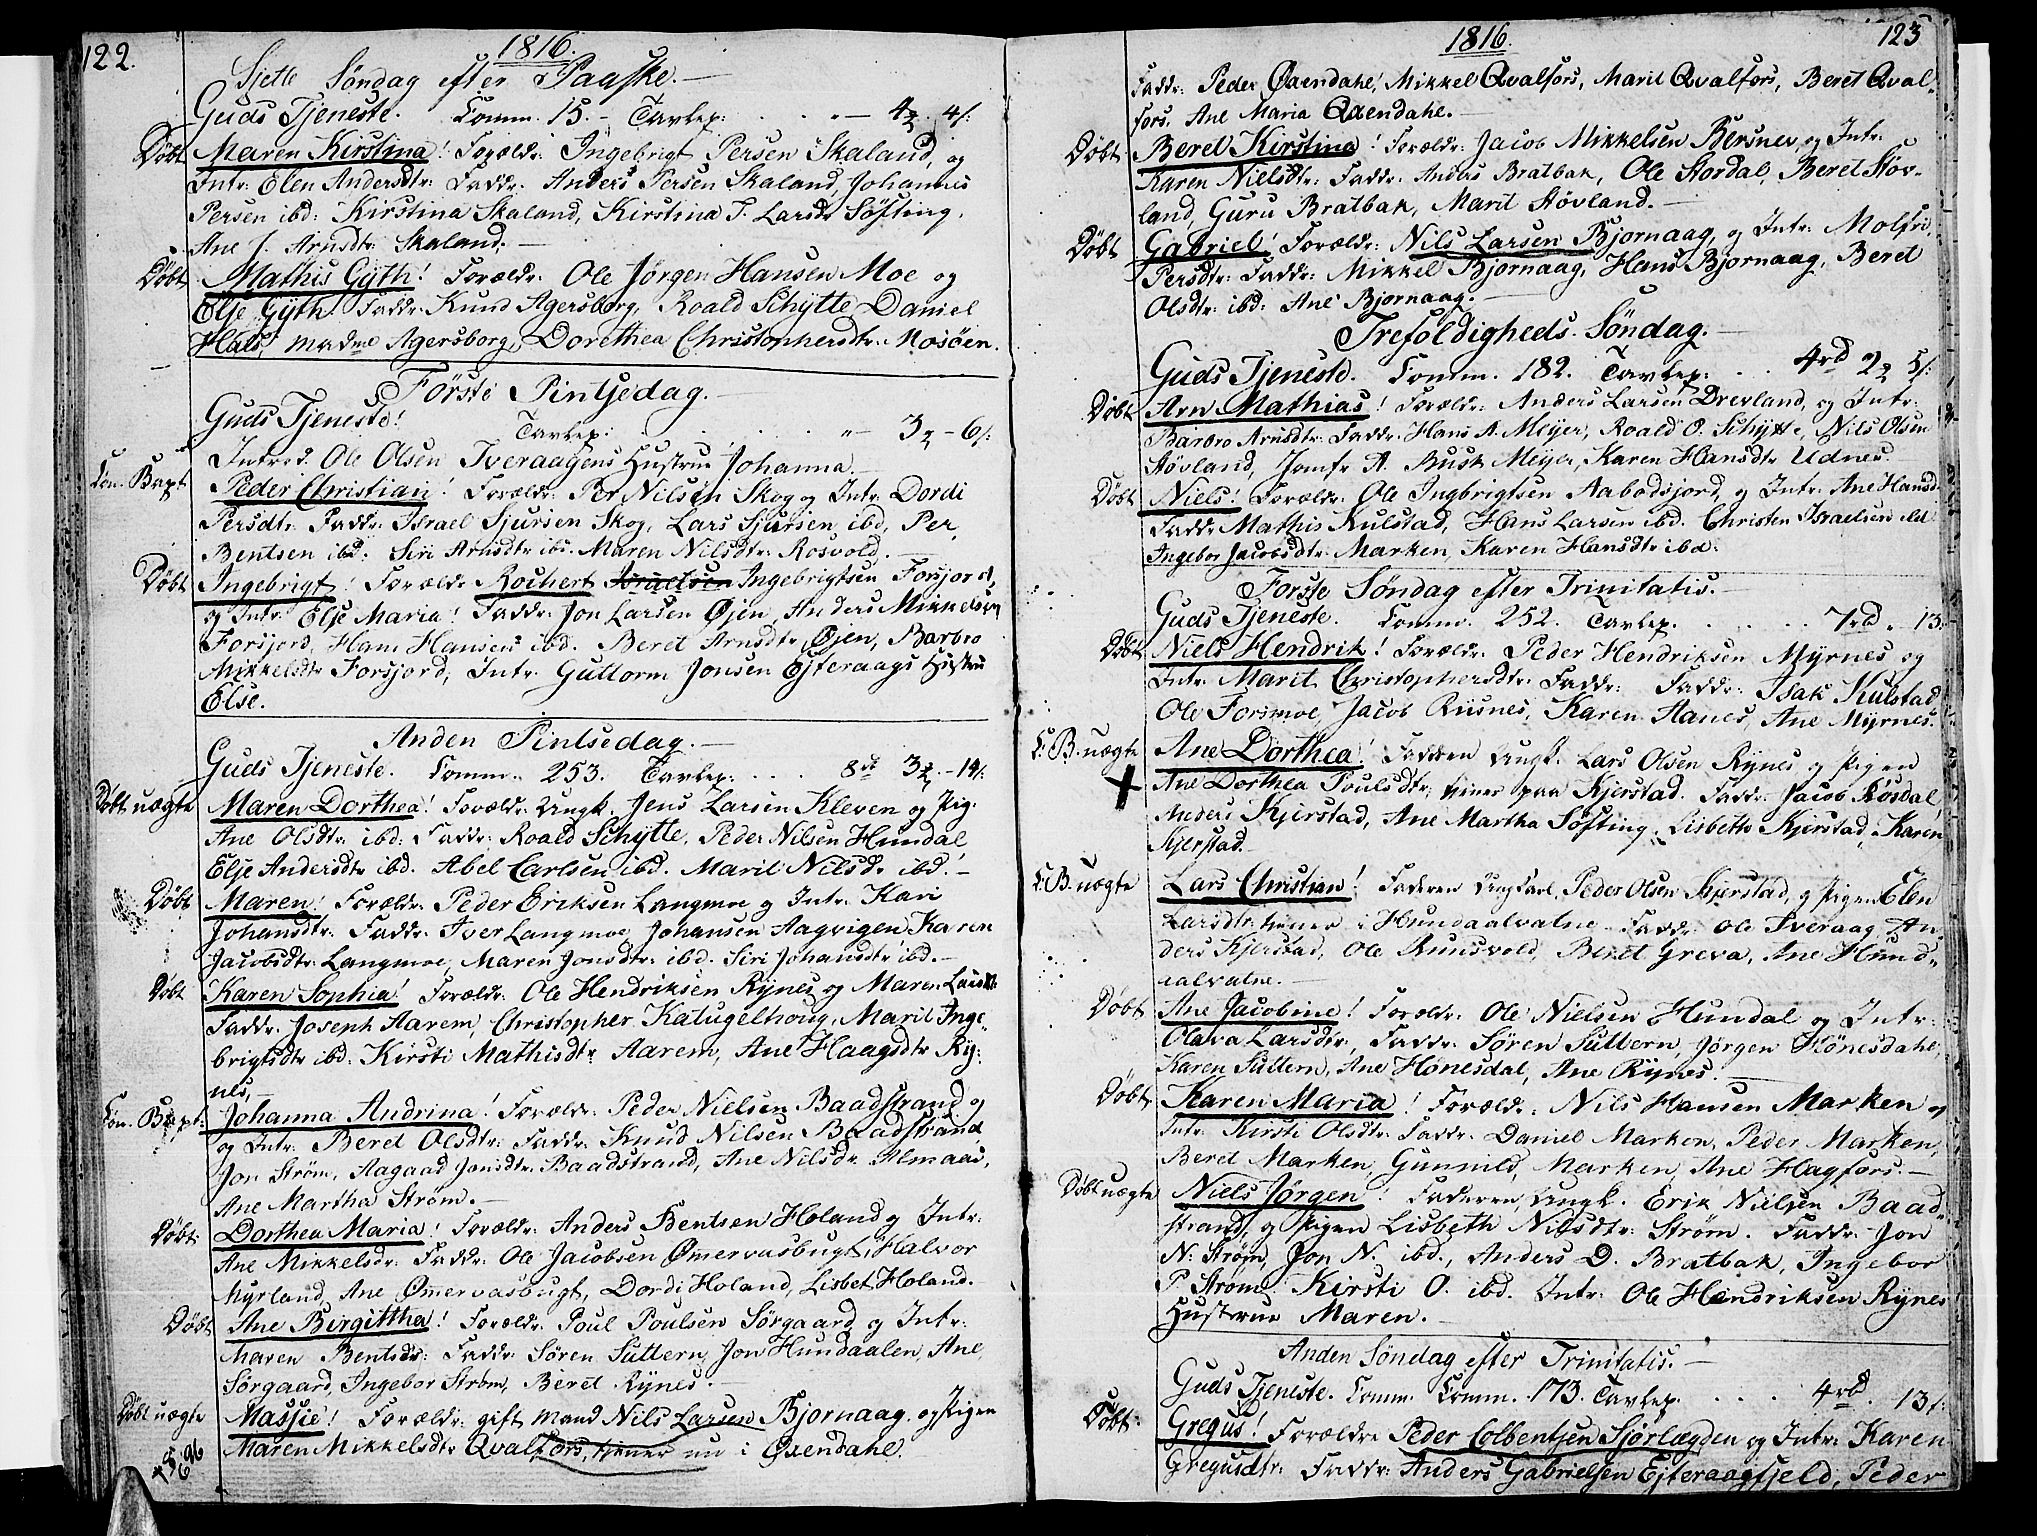 122.
1816.
Sjette Søndag efter Paaske.
Guds Tjeneste. Comm. 15. — Tavlep:
Døbt Maren Kirstina! Forældr: Ingebrigt Persen Skaland, og
Intr: Elen Andersdtr: Faddr: Anders Persen Skaland, Johannis
Persen ibd: Kirstina Skaland, Kirstina J. Larsdr Søfting,
Ane J. Arnsdtr Skaland. —
Døbt Mathis Gyth! Forældr: Ole Jørgen Hansen Moe og
Else Gyth. Faddr: Knud Agersborg, Roald Schytte, Daniel
Hals, Madme Agersborg, Dorethea Christophersdtr: Mosøen.
Förste Pintsedag. —
Guds Tjeneste!
Tavlep:
Introd. Ole Olsen Iveraagens Hustrue Johanna.
Con. Bapt. Peder Christian! Forældr: Per Nilsen Skog og Intr: Dordi
Persdtr: Faddr: Israel Sjursen Skog, Lars Sjursen ibd, Per
Bentsen ibd. Siri Arnsdtr ibd. Maren Nilsdtr: Rosvold. —
Døbt Ingebrigt! Forældr: Rochert Israelsen Ingebrigtsen Forsjord,
og Intr: Else Maria! Faddr: Jon Larsen Øjen, Anders Mikkelsen
Forsjord, Hans Hansen ibd. Beret Arnsdtr Øjen, Barbro
Mikkelsdtr Forsjord, Intr: Guttorm Jonsen Ejteraags Hustru
Else.
Anden Pintsedag. —
Guds Tjeneste. Comm. 253. Tavlep:
Døbt uægte Maren Dorthea! Forældr: Ungk. Jens Larsen Kleven og Pig.
Ane Olsdtr ibd: Faddr: Roald Schytte, Peder Nilsen Hundal
Else Andersdtr ibd. Abel Carlsen ibd. Marit Nilsd. ibd! —
Døbt Maren! Forældr: Peder Eriksen Langmoe og Intr: Kari
Johansdtr: Faddr: Iver Langmoe, Johansen Aagvigen, Karen
Jacobsdtr: Langmoe, Maren Jonsdtr: ibd. Siri Johansdtr ibd. —
Døbt Karen Sophia! Forældr: Ole Hendriksen Rynes og Maren Larsdtr
Faddr: Joseph Aarem, Christopher Katugelhoug, Marit Inge-
brigtsdtr ibd: Kirsti Mathisdtr Aarem, Ane Haagsdtr Ry-
nes,
Con. Bapt: Johanna Andrina! Forældr: Peder Nielsen Baadstrand og
og Intr: Beret Olsdtr: Faddr: Knud Nilsen Baadstrand
Jon Strøm, Aagaad Jonsdtr: Baadstrand, Ane Nilsdr Almaas,
Ane Martha Strøm. —
Døbt: Dorthea Maria! Forældr: Anders Bentsen Holand og Intr:
Ane Mikkelsdr: Faddr: Ole Jacobsen Ømervasbugt, Halvor
Myrland, Ane Ømmervasbugt, Dordi Holand, Lisbet Holand. —
Døbt Ane Birgittha! Forældr: Poul Poulsen Sørgaard og Intr:
Maren Bentsdr: Faddr: Søren Suttern, Jon Hundaalen, Ane
Sørgaard, Ingebor Strøm, Beret Rynes. —
Døbt uægte Massie! Forældr: gift Mand Nils Larsen Bjornaag. og Pigen
Maren Mikkelsdtr Qvalfors, tjener nu i Øxendahl.
1816.
123
Faddr: Peder Øxendahl, Mikkel Qvalfors, Marit Qvalfors, Beret Qval-
fors. Ane Maria Øxendahl. —
Døbt Beret Kirstina! Forældr: Jacob Mikkelsen Bersnev og Intr:
Karen Nielsdtr: Faddr: Anders Bratbak, Ole Stordal, Beret Støv-
land, Guru Bratbak, Marit Støvland. —
Døbt Gabriel! Forældr: Nils Larsen Bjornaag, og Intr: Molfri
Persdtr: Faddr: Mikkel Bjornaag, Hans Bjornaag, Beret
Olsdtr: ibd: Ane Bjornaag. —
Trefoldigheds-Søndag. —
Guds Tjeneste. Comm. 182. Tavlep:
Døbt Arn Mathias! Forældr: Anders Larsen Drevland, og Intr:
Barbro Arnsdtr: Faddr: Hans A. Meyer, Roald O. Schytte, Nils Olsen
Støvland, Jomfr A. Busk Meyer, Karen Hansdtr Udnes.
Døbt Niels! Forældr: Ole Ingbrigtsen Aabodsjord, og Intr: Ane Hansd:
Faddr Mathis Kulstad, Hans Larsen ibd. Christen Israelsen ibd
Ingebor Jacobsdtr: Marken, Karen Hansdtr ibd.
Forste Søndag efter Trinitatis. —
Guds Tjeneste. Comm. 252. Tavlep.
Døbt Niels Hendrik! Forældr: Peder Hendriksen Myrnes og
Intr: Marit Christophersdtr: Faddr: Faddr: Isak Kulstad,
Ole Forsmoe, Jacob Riisnes, Karen Aanes, Ane Myrnes.
C. B. uægte Ane Dorthea! Faderen Ungk. Lars Olsen Rynes og Pigen
Ane Dorthea Poulsdtr, tjener paa Kjerstad. Faddr: Jacob Røsdal,
Anders Kjerstad, Ane Martha Søfting, Lisbeth Kjerstad, Karen
Kjerstad. —
C. B. uægte Lars Christian! Faderen Ungkarl, Peder Olsen Kjerstad, og Pigen Elen
Larsdtr: tjener i Hundaalvalne. Faddr: Ole Iveraag, An-
ders Kjerstad, Ole Ruusvold, Beret Greva, Ane Hund-
aalvalne. —
Døbt Ane Jacobine! Forældr: Ole Nielsen Hundal og Intr:
Olava Larsdtr, Faddr: Søren Suttern, Jørgen Hønesdahl,
Karen Suttern, Ane Hønesdal, Ane Rynes. —
Døbt Karen Maria! Foræld.: Nils Hansen Marken og
Intr: Kirsti Olsdtr: Faddr: Daniel Marken, Peder Marken,
Beret Marken, Gunnild Marken, Ane Hagfors. —
Døbt uægte Niels Jørgen! Faderen, Ungk. Erik Nielsen Baad-
strand, og Pigen Lisbeth Nilsdtr: Strøm. Faddr: Jon
N: Strøm, Jon N. ibd., Anders D. Bratbak, Ingebor
P. Strøm. Kirsti O. ibd. Intr: Ole Hendriksen Rynes
Hustrue Maren. —
Anden Søndag efter Trinitatis. —
Guds Tjeneste. Comm. Comm. 173. Tavlep.
Døbt: Gregus! Forældre Peder Colbentsen Sjørlægden og Intr: Karen
Gregusdtr: Faddr: Anders Gabrielsen Ejteraagfjeld, Peder